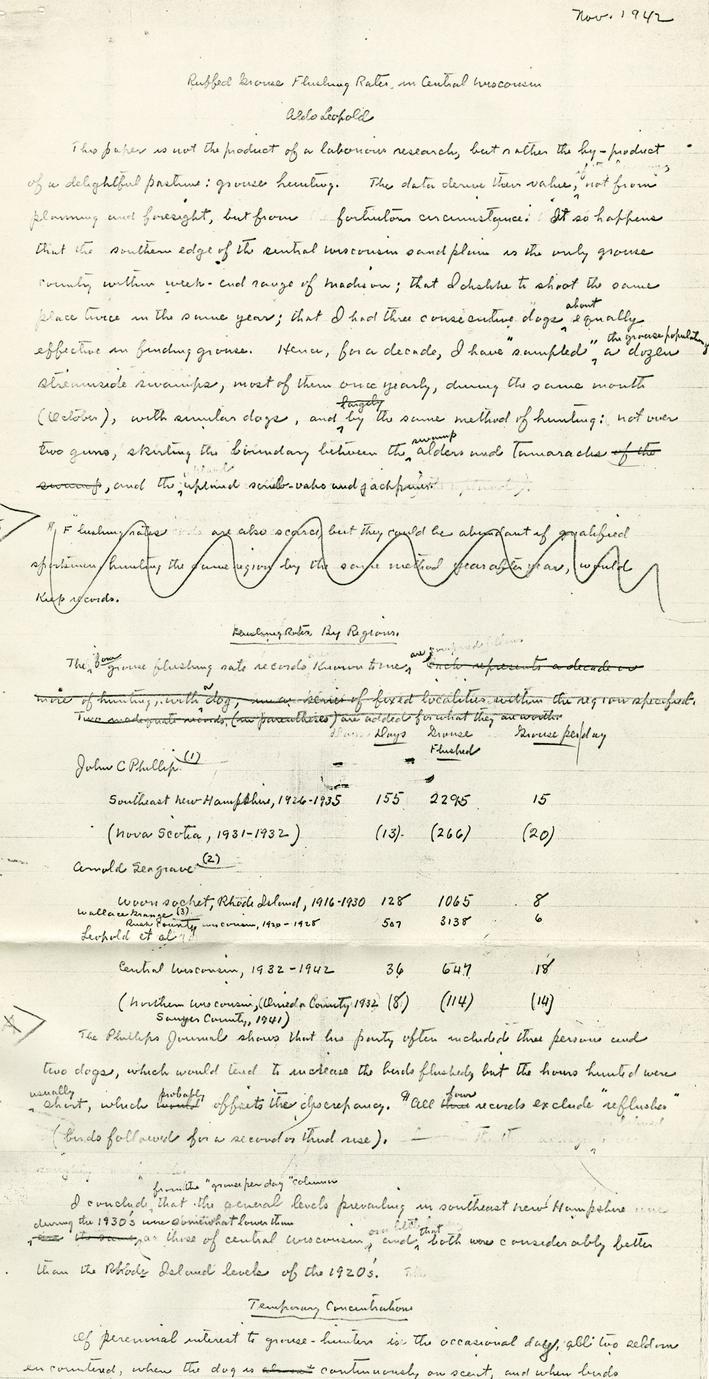 Nov. 1942
Ruffed Grouse Flushing Rates in Central Wisconsin
Aldo Leopold
This paper is not the product of a labourious research, but rather the by-product
of a delightful pastime: grouse hunting. The data derive their value, not from
planning and foresight, but from fortuitous circumstance. It so happens
that the southern edge of the central Wisconsin sand plain is the only grouse
country within week-end range of Madison; that I dislike to shoot the same
place twice in the same year; that I had three consecutive dogs about equally
effective in finding grouse. Hence, for a decade, I have "sampled" the grouse population, a dozen
streamside swamps, most of them once yearly, during the same month
(October), with similar dogs, and largely by the same method of hunting: not over
two guns, skirting the boundary between the swamp alders and tamaracks of the
swamp, and the upland scrub-oaks and jackpines.
"Flushing rates are also scarce, but they could be abundant if qualified
sportsmen hunting the same region by the same method year after year, would
keep records.
Flushing Rates, By Regions.
The four grouse flushing rate records known to me, are Each represents a decade or
more of hunting, with a dog, on a series of fixed localities within the region specified.
Two inadequate records, (in parentheses) are added for what they are worth.
Days Grouse Flushed Grouse per day
John C Phillips (1)
Southeast New Hampshire, 1926-1935 155 2295 15
(Nova Scotia, 1931-1932) (13) (266) (20)
Arnold Seagrave (2)
Woonsocket, Rhode Island, 1916-1930 128 1065 8
Wallace Grange (3)
Rusk County, Wisconsin, 1920-1928 507 3138 6
Leopold et al
Central Wisconsin, 1932-1942 36 647 18
(Northern Wisconsin, (Oneida County 1932 (8) (114) (14)
Sawyer County, 1941)
The Phillips Journal shows that his party often included three persons and
two dogs, which would tend to increase the birds flushed, but the hours hunted were
usually short, which probably offsets the discrepancy. All four records exclude "reflushes"
(birds followed for a second or third rise).
I conclude, from the "grouse per day" column that the general levels prevailing in southeast New Hampshire
during the 1930's were somewhat lower than those of central Wisconsin, and that both were considerably better
than the Rhode Island levels of the 1920's.
Temporary Concentrations
Of perennial interest to grouse-hunters is the occasional day, all too seldom
encountered, when the dog is almost continuously on scent, and when birds